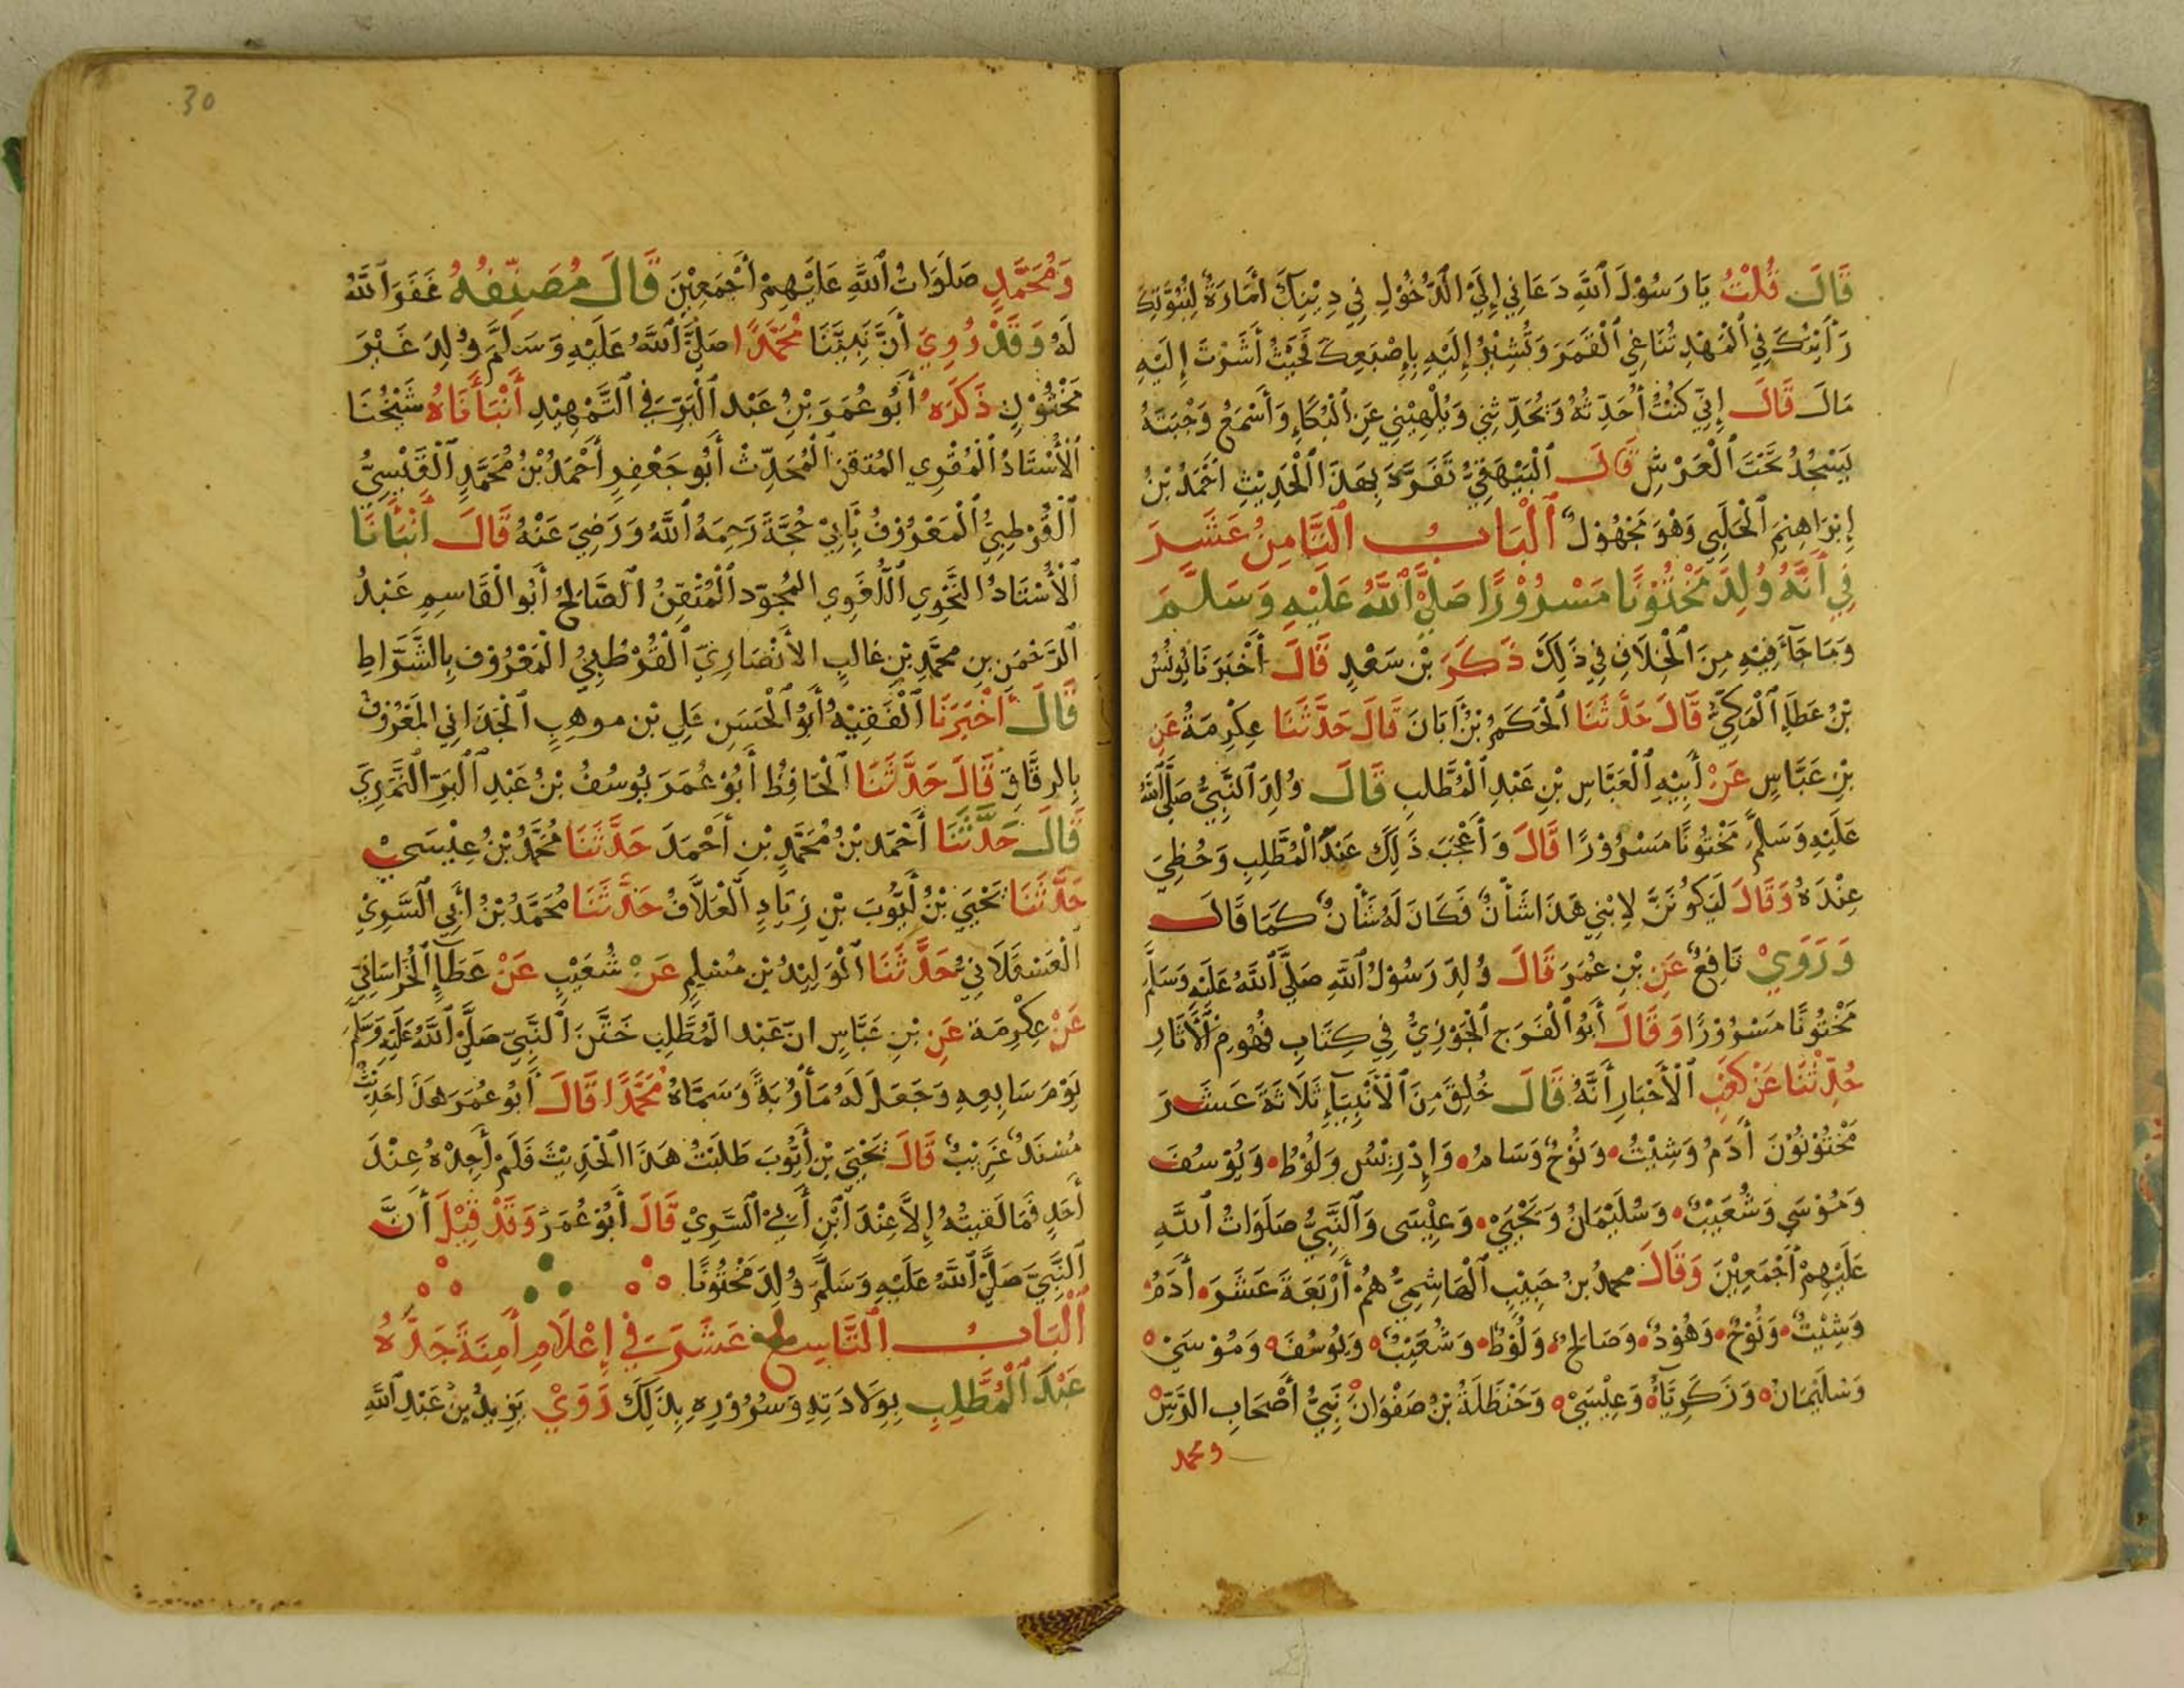 قَالَ قُلْتُ يَا رَسُوْلَ ٱللَّهِ دَعَانِي إِلَيَ ٱلدُّخُوْلِ فِي دِيْنِكَ أَمَارَةٌ لِنُبُوَّتِكَ
رَأَيْتُكَ فِي ٱلْمَهْدِ تُنَاغِي ٱلْقَمَرَ وَتُشِيْرُ إِلَيْهِ بِإِصْبَعِكَ فَحَيْثُ أَشَرْتَ إِلَيْهِ
مَالَ قَالَ إِنِّي كُنْتُ أُحَدِّثُهُ وَيُحَدِّثُنِي وَيُلْهِيْنِي عَنِ ٱلْبُكَاءِ وَأَسْمَعُ وَجْبَتَهُ
يَسْجُدُ تَحْتَ ٱلْعَرْشِ قَالَ ٱلْبَيْهَقِيُّ تَفَرَّدَ بِهَذَا ٱلْحَدِيْثِ أَحْمَدُ بْنُ
إِبْرَاهِيْمَ ٱلْحَلَبِي وَهْوَ مَجْهُوْلٌ ٱلْبَابُ ٱلثَّامِنُ عَشَرَ
فِي أَنَّهُ وُلِدَ مَخْتُوْنًا مَسْرُوْرًا صَلَّيَ ٱللَّهُ عَلَيْهِ وَسَلَّمَ
وَمَا جَآءَ فِيْهِ مِنَ ٱلْخِلَافِ فِي ذَلِكَ ذَكَرَ بْنُ سَعْدٍ قَالَ أَخْبَرَنَا يُونُسُ
بْنُ عَطَاءٍ ٱلْمَكِّيُّ قَالَ حَدَّثَنَا ٱلْحَكَمُ بْنُ أَبَانَ قَالَ حَدَّثَنَا عِكْرِمَةُ عَنِ
بْنِ عَبَّاسٍ عَنْ أَبِيْهِ ٱلْعَبَّاسِ بْنِ عَبْدِ ٱلْمُطَّلِبِ قَالَ وُلِدَ ٱلنَّبِيُّ صَلَّي ٱللَّهُ
عَلَيْهِ وَسَلَّمَ مَخْتُونًا مَسْرُوْرًا قَالَ وَأَعْجَبَ ذَلِكَ عَبْدَ ٱلْمُطَّلِبِ وَحُظِيَ
عِنْدَهُ وَقَالَ لَيَكُوْنَنَّ لِابْنِي هَذَا شَأْنٌ فَكَانَ لَهُ شَأْنٌ كَمَا قَالَ
وَرَوَيْ نَافِعٌ عَنِ بْنِ عُمَرَ قَالَ وُلِدَ رَسُوْلُ ٱللَّهِ صَلَّي ٱللَّهُ عَلَيْهِ وَسَلَّمَ
مَخْتُونًا مَسْرُوْرًا وَقَالَ أَبُو ٱلْفَرَجِ ٱلْجَوْزِيُّ فِي كِتَابِ فُهُومِ ٱلْأَثَارِ
حُدِّثْنَا عَنْ كَعْبِ ٱلْأَحْبَارِ أَنَّهُ قَالَ خُلِقَ مِنَ ٱلْأَنْبِيَآءِ ثَلَاثَةَ عَشَرَ
مَخْتُوْنُوْنَ أَدَمُ وَشِيْثُ وَنُوْحٌ وَسَامُ وَإِدْرِيْسُ وَلُوْطُ وَيُوْسُفَ
وَمُوْسَي وَشُعَيْبٌ وَسُلَيْمَانُ وَيَحْيَيْ وَعِيْسَى وَٱلنَّبِيُّ صَلَوَاتُ ٱللَّهِ
عَلَيْهِمْ أَجْمَعِيْنَ وَقَالَ محمدُ بنُ حَبِيْبٍ ٱلْهَاشِمِيُّ هُمْ أَرْبَعَةَ عَشَرَ أَدَمُ
وَشِيْثٌ وَنُوْحٌ وَهُوْدٌ وَصَالِحٌ وَلُوْطٌ وَشُعَيْبٌ وَيُوْسُفَ وَمُوْسَيْ
وَسُلَيْمَانُ وَزَكَرِيَّآءُ وَعِيْسَيْ وَحَنْظَلَةُ بْنُ صَفْوَانَ نَبِيُّ أَصْحَابِ الرَّسِّ
ومحمد
30
وَمُحَمَّدٍ صَلَوَاتُ ٱللَّهِ عَلَيْهِمْ أَجْمَعِيْنَ قَالَ مُصَنِّفُهُ غَفَرَ ٱللَّهُ
لَهُ وَقَدْ رُوِيَ أَنَّ نَبِيَّنَا مُحَمَّدًا صَلَّيَ ٱللَّهُ عَلَيْهِ وَسَلَّمَ وُلِدَ غَيْرَ
مَخْتُوْنٍ ذَكَرَهُ أَبُو عُمَرَ بْنِ عَبْدِ ٱلْبَرِّ فِي ٱلتَّمْهِيْدِ أَنْبَأَنَاهُ شَيْخُنَا
ٱلْأُسْتَاذُ ٱلْمُقْرِي المُتقن ٱلْمُحَدِّثُ أَبُو جَعْفِرٍ أَحْمَدُ بْنُ مُحَمَّدٍ ٱلْقَيْسِيُّ
ٱلْقُرْطِبِيُّ ٱلْمَعْرُوْفُ بِأَبِيْ حُجَّةَ رَحِمَهُ ٱللَّهُ وَرَضِيَ عَنْهُ قَالَ أَنْبَأَنَا
ٱلْأُسْتَاذُ النَّحْوِي ٱللُّغَوِي المُجوّد ٱلْمُتْقِنُ ٱلصَّالِحُ أَبُو الْقَاسِمِ عَبْدُ
ٱلرَّحْمَنِ بنِ محمَّدِ بْنِ غالِبٍ الأَنْصَارِيّ ٱلْقُرْطُبِيُّ الْمَعْرُوْف بِالشَّرَّاطِ
قَالَ أَخْبَرَنَا ٱلْفَقِيْهُ أَبُو ٱلْحَسَنِ عَلِي بْن موهِبٍ ٱلْجَذَامِي المَعْرُوْفُ
بِالرقَّاقِ قَالَ حَدَّثَنَا ٱلْحَافِظُ أَبُوْ عُمَرَ يُوسُفُ بْنُ عَبْدِ ٱلْبَرِّ ٱلنَّمَرِيَّ
قَالَ حَدَّثَنَا أَحْمَدُ بْنُ مُحَمَّدِ بْنِ أَحْمَدَ حَدَّثَنَا مُحَمَّدُ بْنُ عِيْسَى
حَدَّثَنَا يَحْيَيَ بْنُ أَيُّوبَ بْنِ زِيَادٍ ٱلْعَلَّافُ حَدَّثَنَا مُحَمَّدُ بْنُ أَبِي ٱلسَّرِيْ
ٱلْعَسْقَلَانِيُّ حَدَّثَنَا ٱلْوَلِيْدُ بْن مُسْلِمٍ عَنْ شُعَيْبٍ عَنْ عَطَآءٍ ٱلْخُرَاسَانِيِّ
عَنْ عِكْرِمَةَ عَنِ بْنِ عَبَّاسٍ انّ عَبْد المُطَّلِبِ خَتَنَ ٱلنَّبِيَّ صَلَّيَ ٱللَّهُ عَلَيْهِ وَسَلَّمَ
يَوْمَ سَابِعِهِ وَجَعَلَ لَهُ مَأْدُبَةً وَسَمَّاهُ مُحَمَّدًا قَالَ أَبُو عُمَرَ هَذَا حَدِيْثٌ
مُسْنَدٌ غَرِيْبٌ قَالَ يَحْيَيَ بْن أَيُّوبَ طَلَبْتُ هَذَا الْحَدِيْثَ فَلَمْ أَجِدْهُ عِنْدَ
أَحَدٍ فَمَا لَقِيتُهُ إِلاَّ عِنْدَ ٱبْنِ أَبِيْ ٱلسَّرِيْ قَالَ أَبُوْ عُمَرَ وَقَدْ قِيْلَ أَنَّ
ٱلنَّبِيَّ صَلَّيَ ٱللَّهُ عَلَيْهِ وَسَلَّمَ وُلِدَ مَخْتُوْنًا
ٱلْبَابُ ٱلتَّاسِعُ عَشَرَ فِي إِعْلَامِ أَمِنَةَ جَدَّهُ
عَبْدَ ٱلْمُطَّلِبِ بِوِلَادَتِهِ وَسُرُوْرِهِ بِذَلِكَ رَوَيْ يَزِيدُ بْنُ عَبْدِ ٱللَّهِ